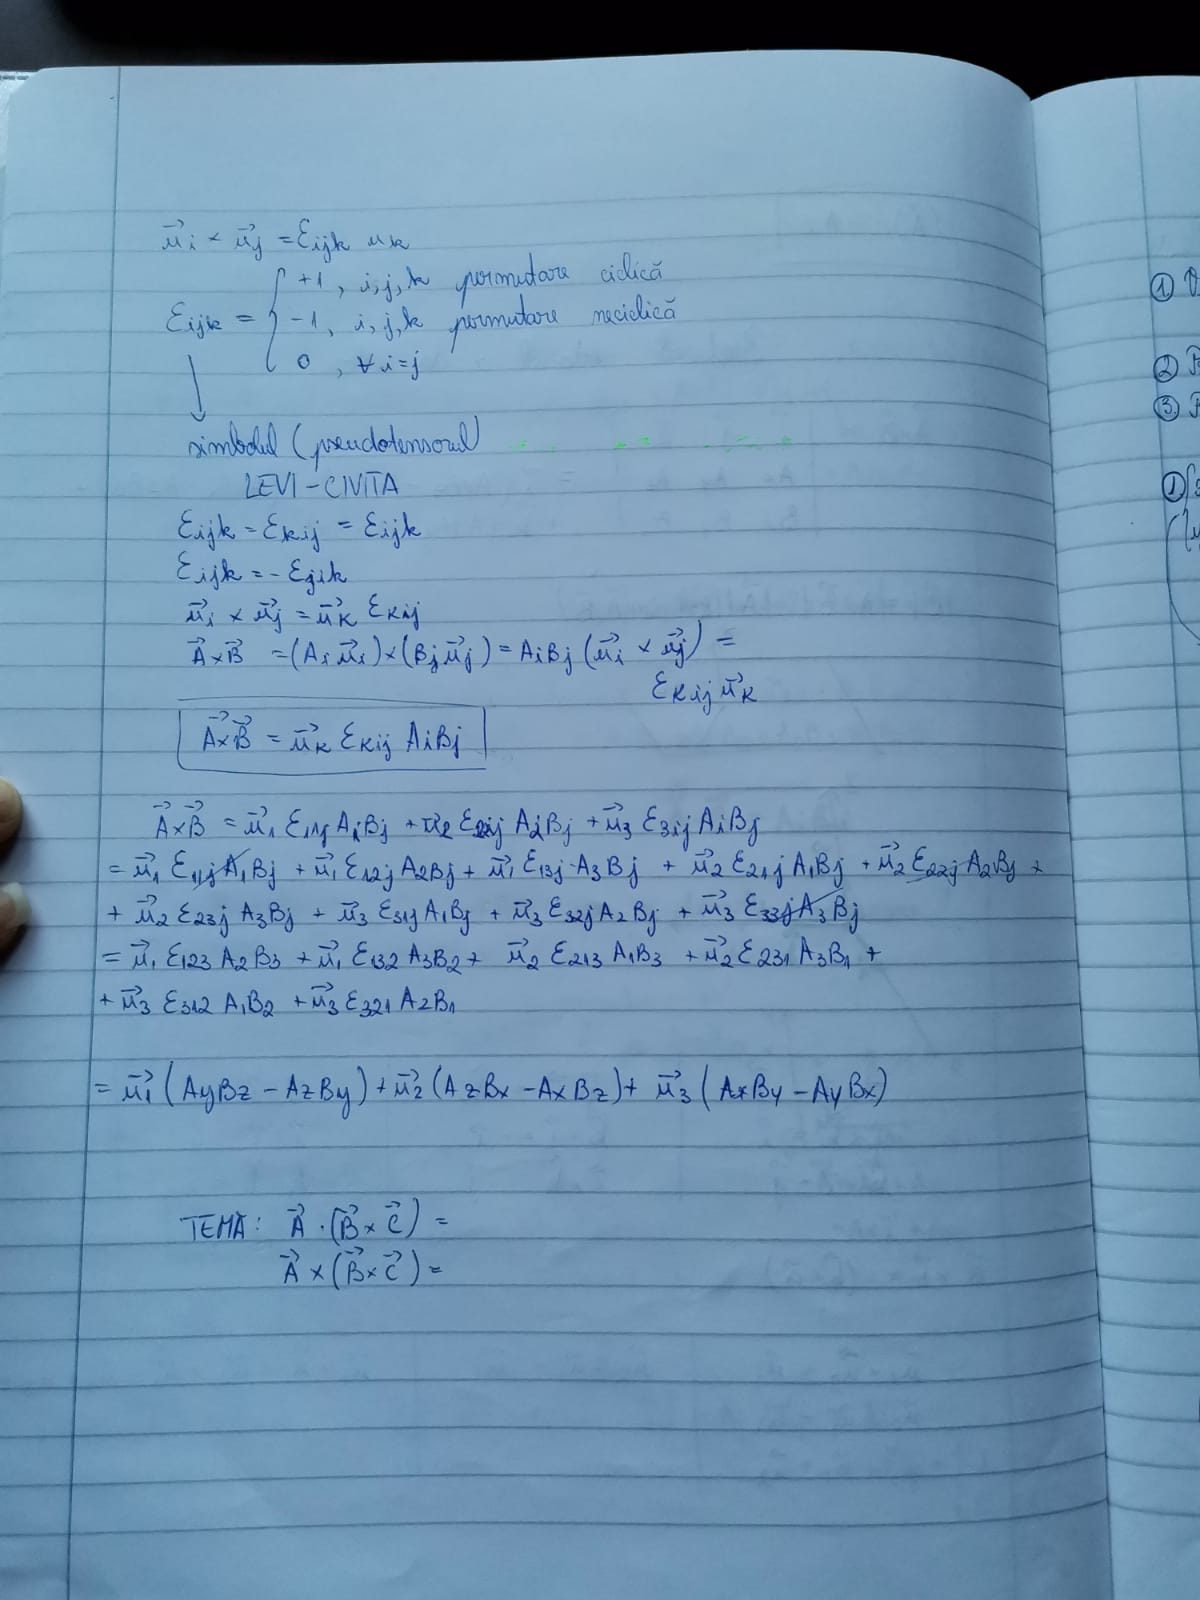 u⃗i × u⃗j = Ɛijk uk
Ɛijk = { +1, i,j,k permutare ciclică
-1, i,j,k permutare neciclică
0, ∀ i=j
↓
simbolul (pseudotensorul)
LEVI-CIVITA
Ɛijk = Ɛkij = Ɛijk
Ɛijk = - Ɛjik
u⃗i × u⃗j = u⃗k Ɛkij
A⃗×B⃗ = (Ai u⃗i)×(Bj u⃗j) = AiBj (u⃗i × u⃗j) =
Ɛkij u⃗k
A⃗×B⃗ = u⃗k Ɛkij AiBj
A⃗×B⃗ = u⃗1 Ɛ1ij AiBj + u⃗2 Ɛ2ij AiBj + u⃗3 Ɛ3ij AiBj
= u⃗1 Ɛ11j A1Bj + u⃗1 Ɛ12j A2Bj + u⃗1 Ɛ13j A3Bj + u⃗2 Ɛ21j A1Bj + u⃗2 Ɛ22j A2Bj +
+ u⃗2 Ɛ23j A3Bj + u⃗3 Ɛ31j A1Bj + u⃗3 Ɛ32j A2Bj + u⃗3 Ɛ33j A3Bj
= u⃗1 Ɛ123 A2B3 + u⃗1 Ɛ132 A3B2 + u⃗2 Ɛ213 A1B3 + u⃗2 Ɛ231 A3B1 +
+ u⃗3 Ɛ312 A1B2 + u⃗3 Ɛ321 A2B1
= u⃗1 (AyBz - AzBy) + u⃗2 (AzBx - AxBz) + u⃗3 (AxBy - AyBx)
TEMĂ: A⃗ · (B⃗ × C⃗) =
A⃗ × (B⃗ × C⃗) =
①
②
③
①